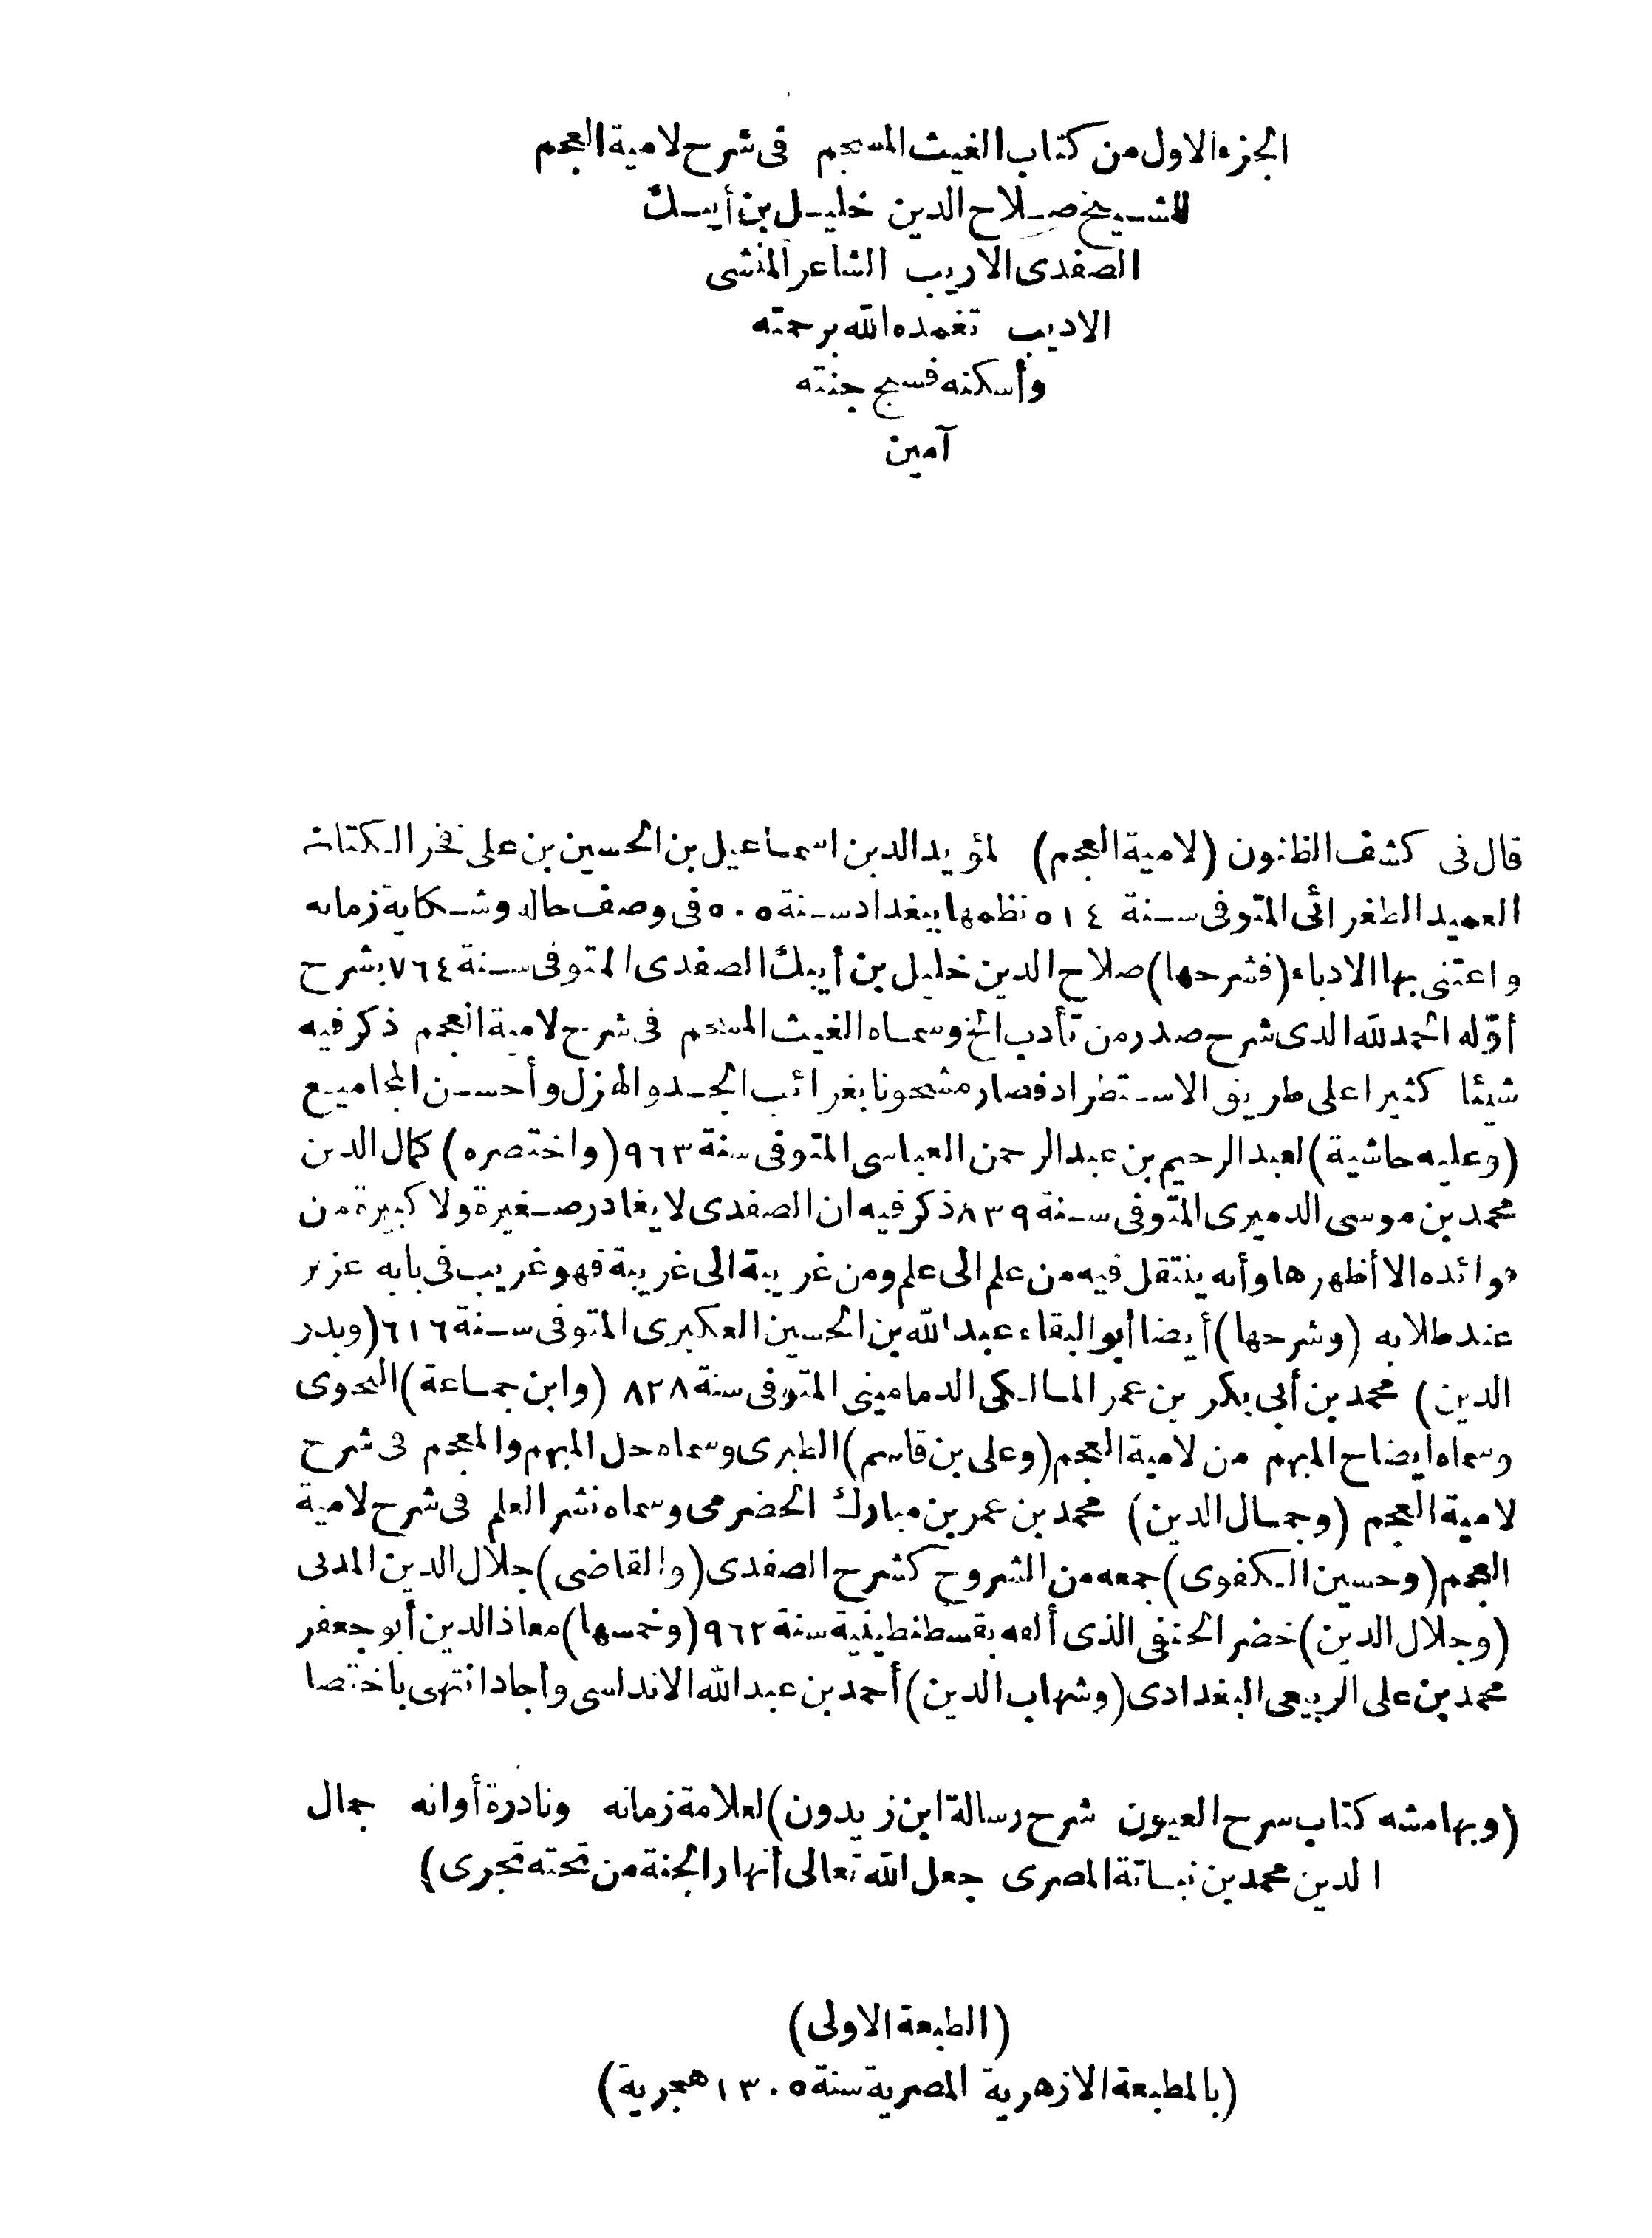 الجزء الاول من كتاب الغيث المسجم فى شرح لامية العجم
للشيخ صلاح الدين خليل بن أيبك
الصفدى الاريب الشاعر المنشى
الاديب تغمده الله برحمته
وأسكنه فسيح جنته
آمين
قال فى كشف الظنون (لامية العجم) لمؤيد الدين اسماعيل بن الحسين بن على فخر الكتاب
العميد الطغرائى المتوفى سنة ٥١٤ نظمها ببغداد سنة ٥٠٥ فى وصف حاله وشكاية زمانه
واعتنى بها الادباء (فشرحها) صلاح الدين خليل بن أيبك الصفدى المتوفى سنة ٧٦٤ بشرح
أوّله الحمد لله الذى شرح صدر من تأدب الخ وسماه الغيث المسجم فى شرح لامية العجم ذكر فيه
شيئا كثيرا على طريق الاستطراد فصار مشحونا بغرائب الجد والهزل وأحسن المجاميع
(وعليه حاشية) لعبد الرحيم بن عبد الرحمن العباسى المتوفى سنة ٩٦٣ (واختصره) كمال الدين
محمد بن موسى الدميرى المتوفى سنة ٨٣٩ ذكر فيه ان الصفدى لا يغادر صغيرة ولا كبيرة من
فوائده الا أظهرها وأنه ينتقل فيه من علم الى علم ومن غريبة الى غريبة فهو غريب فى بابه عزيز
عند طلابه (وشرحها) أيضا أبو البقاء عبد الله بن الحسين العكبرى المتوفى سنة ٦١٦ (وبدر
الدين) محمد بن أبى بكر بن عمر المالكى الدمامينى المتوفى سنة ٨٢٨ (وابن جماعة) النحوى
وسماه ايضاح المبهم من لامية العجم (وعلى بن قاسم) الطبرى وسماه حل المبهم والمعجم فى شرح
لامية العجم (وجمال الدين) محمد بن عمر بن مبارك الحضرمى وسماه نشر العلم فى شرح لامية
العجم (وحسين الكفوى) جمعه من الشروح كشرح الصفدى (والقاضى) جلال الدين المدنى
(وجلال الدين) خضر الحنفى الذى ألفه بقسطنطينية سنة ٩٦٢ (وخمسها) معاذ الدين أبو جعفر
محمد بن على الربيعى البغدادى (وشهاب الدين) أحمد بن عبد الله الاندلسى وأجاد انتهى باختصا
(وبهامشه كتاب سرح العيون شرح رسالة ابن زيدون) لعلامة زمانه ونادرة أوانه جمال
الدين محمد بن نباتة المصرى جعل الله تعالى أنهار الجنة من تحته تجرى)
(الطبعة الاولى)
(بالمطبعة الازهرية المصرية سنة ١٣٠٥ هجرية)